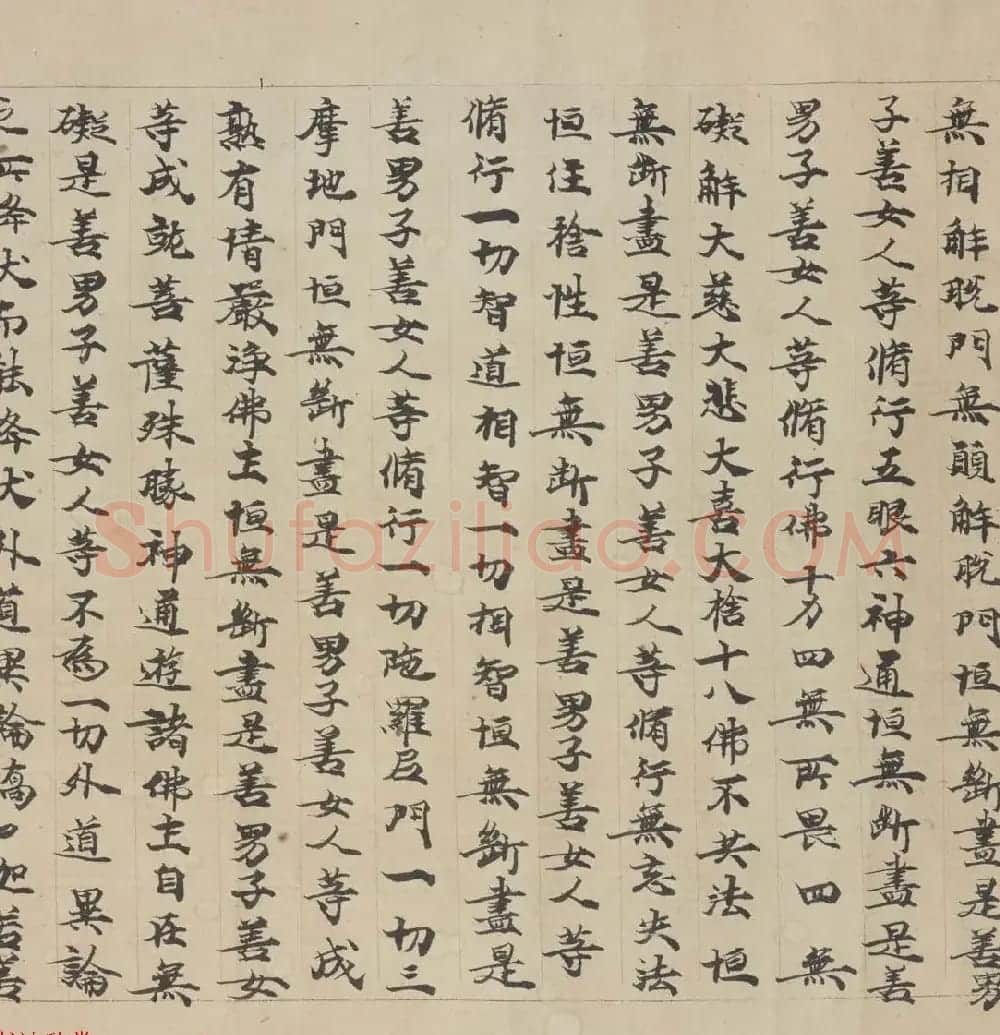 無相解脫門無願解脫門恒無斷盡是善男
子善女人等脩行五眼六神通恒無斷盡是善
男子善女人等脩行佛十力四無所畏四無
礙解大慈大悲大喜大捨十八佛不共法恒
無斷盡是善男子善女人等脩行無忘失法
恒住捨性恒無斷盡是善男子善女人等
脩行一切智道相智一切相智恒無斷盡是
善男子善女人等脩行一切陁羅尼門一切三
摩地門恒無斷盡是善男子善女人等成
熟有情嚴淨佛土恒無斷盡是善男子善女
等成就菩薩殊勝神通遊諸佛土自在無
礙是善男子善女人等不為一切外道異論
Shufaziliao.COM